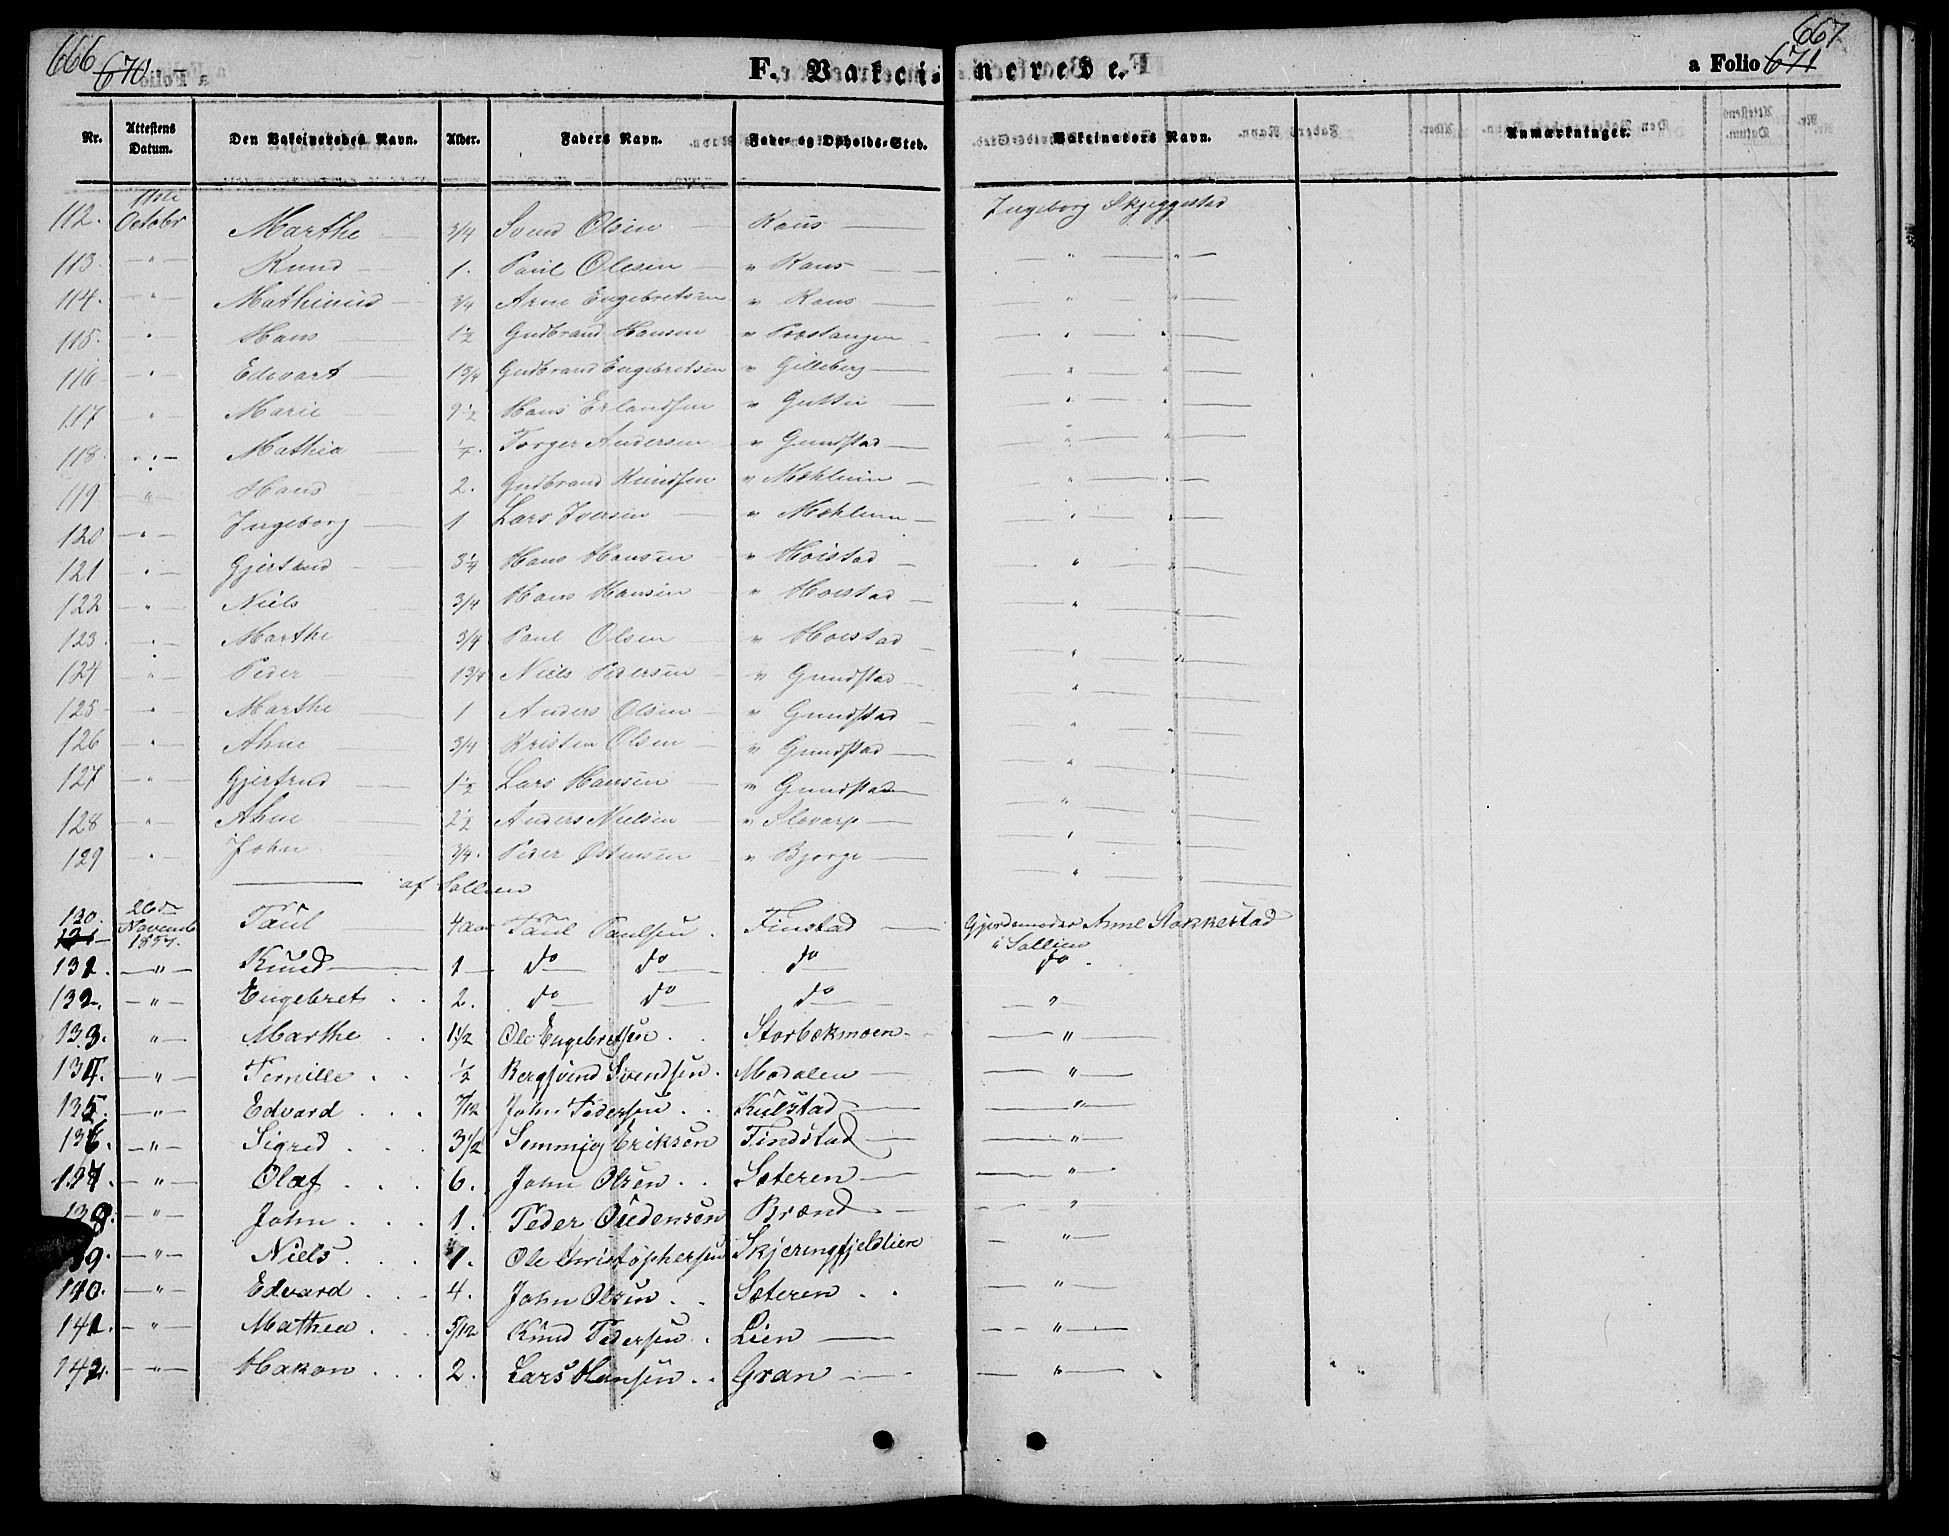 666 670 F. Vakcinerede. a Folio 671 667
Nr. Attestens Datum. Den Vakcineredes Navn. Alder. Faders Navn. Føde- og Opholds-Sted. Vakcinators Navn. Anmærkninger.
112. October Marthe 3/4 Svend Olsen Kaus Ingeborg Skjeggestad
113. " Knud 1. Paul Olesen " Kaus " "
114. " Mathinus 3/4 Arne Engebretsen " Kaus " "
115. " Hans 1 1/2 Gudbrand Hansen " Prestangen " "
116 " Edevart 1 3/4 Gudbrand Engebretsen " Gilleberg " "
117 " Marie 9 1/2 Hans Erlandsen " Guttu " "
118. " Mathia Torger Andersen " Gundstad " "
119 " Hans 2. Gudbrand Knudsen " Mæhlum " "
120 " Ingeborg 1 Lars Iversen " Mæhlum " "
121 " Gjertrud 3 1/4 Hans Hansen " Hoistad " "
122 " Niels 3/4 Hans Hansen " Hoistad " "
123. " Marthe 3/4 Paul Olsen " Hoistad " "
124 " Peder 1 3/4 Niels Pedersen " Gundstad " "
125 " Marthe 1 Anders Olsen " Gundstad " "
126 " Ahne 3/4 Kristen Olsen " Gundstad " "
127 " Gjertrud 1 1/2 Lars Hansen " Gundstad " "
128 " Ahne 2 1/2 Anders Nielsen " Slovarp " "
129 " John 3/4. Peder Østensen " Bjørge " "
af Sollien
130. 26de Novemb 1857. Paul 4 aar Paul Paulsen. Finstad Gjordemoder Anne Stokkestad i Sollien
131. " Knud 1 do do do do.
132. " Engebret . . 2. do do do "
133. " Marthe . . 1 1/2 Ole Engebretsen . . Storbækmoen "
134. " Pernille . . 1/2 Bergsvend Svendsen. Modalen "
135. " Edvard . . . 7/12 John Pedersen . . Kulstad "
136. " Sigred . . . 3 1/2 Semmig Eriksen Findstad "
137. " Olaf . . . 6. John Olsen . . Sæteren "
138. " John . . . 1. Peder Audensen Brænd "
139. " Niels . . . 1. Ole Christophersen Skjeringfjeldlien "
140. " Edvard . . . 4. John Olsen . . Sæteren . . "
141. " Mathea . . . 5/12 Knud Pedersen . Lien "
142. " Hakon . . . 2. Lars Hansen . . Gran "